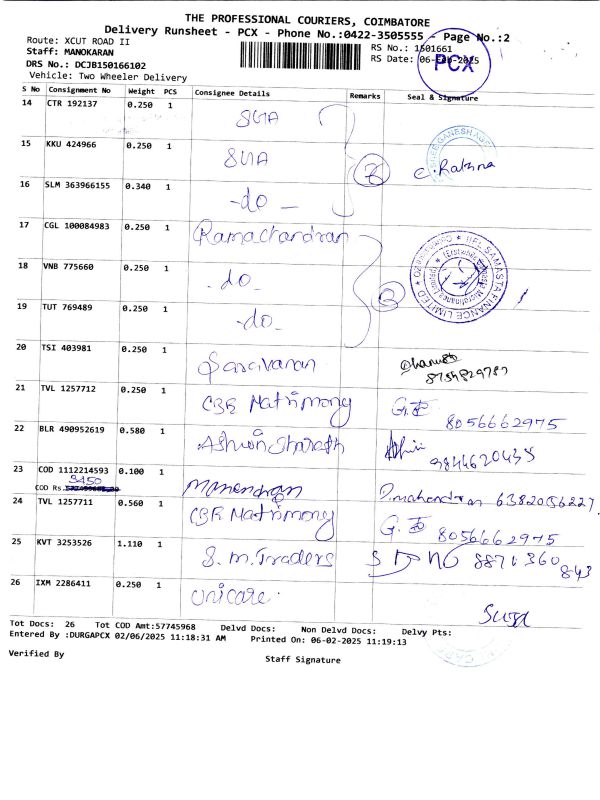 THE PROFESSIONAL COURIERS, COIMBATORE
Delivery Runsheet - PCX - Phone No.:0422-3505555 - Page No.:2
Route: XCUT ROAD II
RS No.: 1501661
Staff: MANOKARAN
RS Date: 06-Feb-2025
PCX
DRS No.: DCJB150166102
Vehicle: Two Wheeler Delivery
S No Consignment No Weight PCS Consignee Details Remarks Seal & Signature
14 CTR 192137 0.250 1
15 KKU 424966 0.250 1
16 SLM 363966155 0.340 1 -do-
17 CGL 100084983 0.250 1 Ramachandran
18 VNB 775660 0.250 1 -do-
19 TUT 769489 0.250 1 -do-
IIFL SAMASTA FINANCE LIMITED
20 TSI 403981 0.250 1 Saravanan
21 TVL 1257712 0.250 1 CBE Matrimony 8056662975
22 BLR 490952619 0.580 1 Ashwin Sharath 9844620435
23 COD 1112214593 0.100 1 Manendran P.mahendran 6382056227
COD Rs. 3450
24 TVL 1257711 0.560 1 CBE Matrimony 8056662975
25 KVT 3253526 1.110 1 S.M. Traders 8871360843
26 IXM 2286411 0.250 1 Unicare
Tot Docs: 26 Tot COD Amt:57745968 Delvd Docs: Non Delvd Docs: Delvy Pts:
Entered By :DURGAPCX 02/06/2025 11:18:31 AM Printed On: 06-02-2025 11:19:13
Verified By
Staff Signature